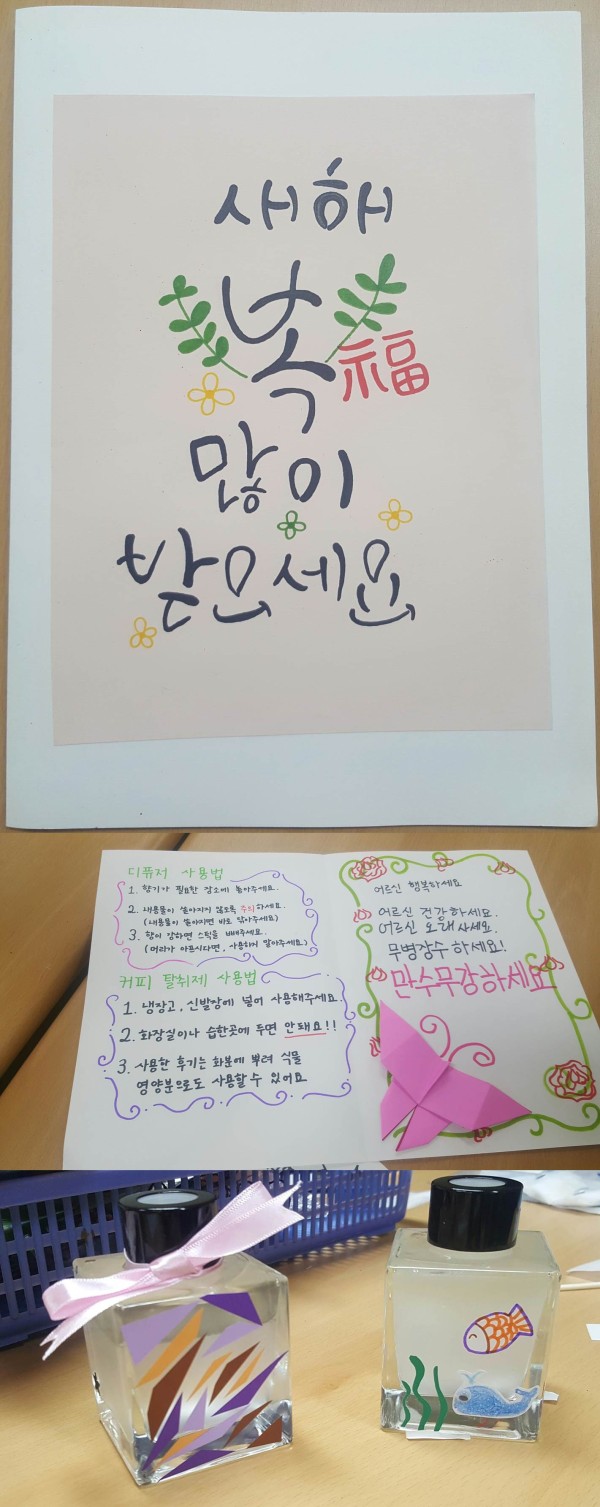 새해
복
福
많이
받으세요
디퓨저 사용법
1. 향기가 필요한 장소에 놓아주세요.
2. 내용물이 쏟아지지 않도록 주의하세요.
(내용물이 쏟아지면 바로 닦아주세요)
3. 향이 강하면 스틱을 빼주세요.
(머리가 아프시다면, 사용하지 말아주세요.)
커피 탈취제 사용법
1. 냉장고, 신발장에 넣어 사용해주세요.
2. 화장실이나 습한곳에 두면 안돼요!!
3. 사용한 후기는 화분에 뿌려 식물
영양분으로도 사용할 수 있어요
어르신 행복하세요
어르신 건강하세요.
어르신 오래 사세요.
무병장수 하세요!
만수무강하세요